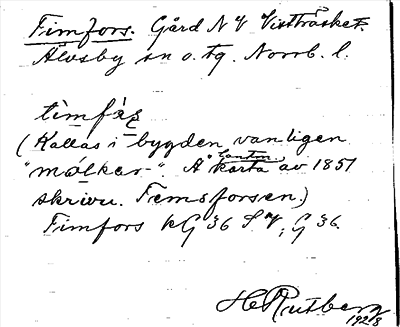 Timfors. Gård N V Vistträsket.
Älvsby sn o. tg. Norrb. l.
tìmfàş
(Kallas i bygden vanligen
"mólker-". Å lantm. karta av 1857
skrivu. Temsforsen.)
Timfors kG 36 S V, G 36.
H Rutberg
1928